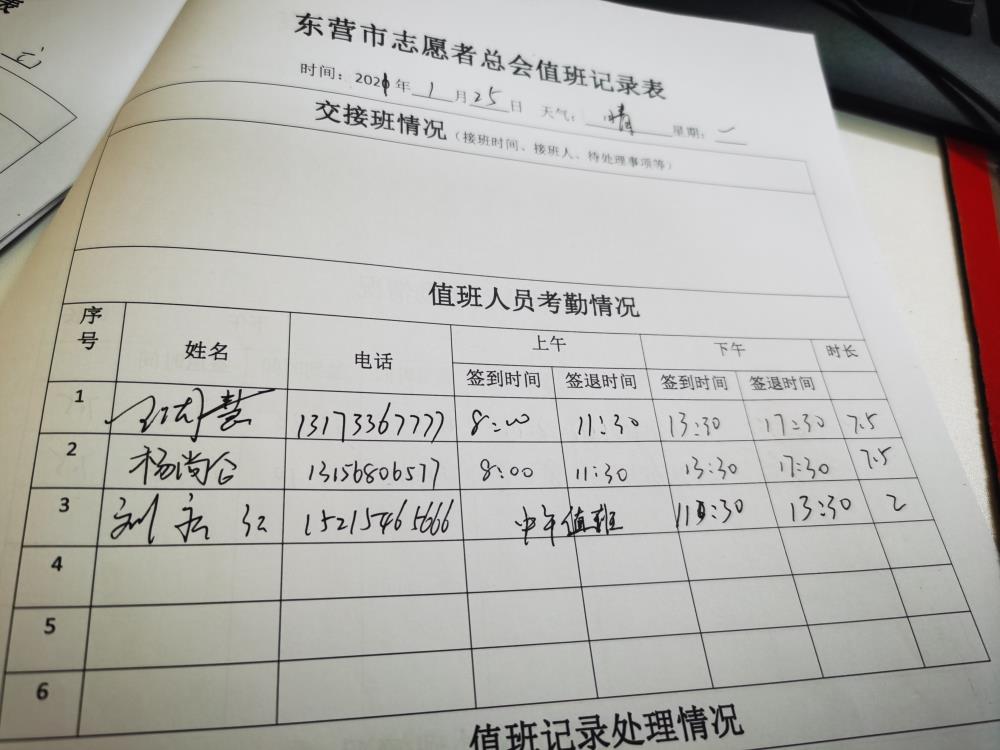 东营市志愿者总会值班记录表
时间：2021年 1 月 25 日 天气：晴 星期：一
交接班情况（接班时间、接班人、待处理事项等）
值班人员考勤情况
序号 姓名 电话 上午 下午 时长
签到时间 签退时间 签到时间 签退时间
1 13173367777 8:00 11:30 13:30 17:30 7.5
2 杨尚仑 13156806577 8:00 11:30 13:30 17:30 7.5
3 刘 红 15215465666 中午值班 11:30 13:30 2
4
5
6
值班记录处理情况